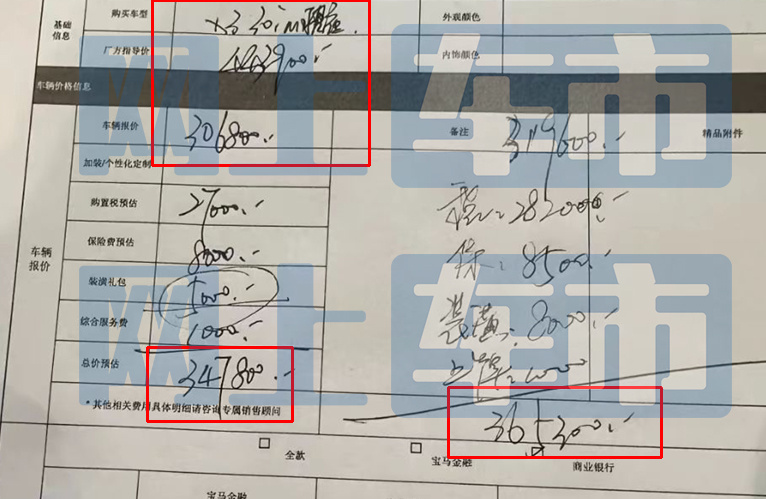 购买车型 X3 30i m 外观颜色
基础信息
厂方指导价 443900.- 内饰颜色
车辆价格信息
车辆报价 306800.- 备注 319600.- 精品附件
加装/个性化定制
购置税预估 27000.- 税:
保险费预估 8000.- 保: 8500.-
车辆报价
装潢礼包 5000.- 装潢: 8000.-
综合服务费 1000.- 上牌: 1000
总价预估 347800.-
* 其他相关费用具体明细请咨询专属销售顾问 365300.-
全款 宝马金融 商业银行
宝马金融
网上车市
网上车市